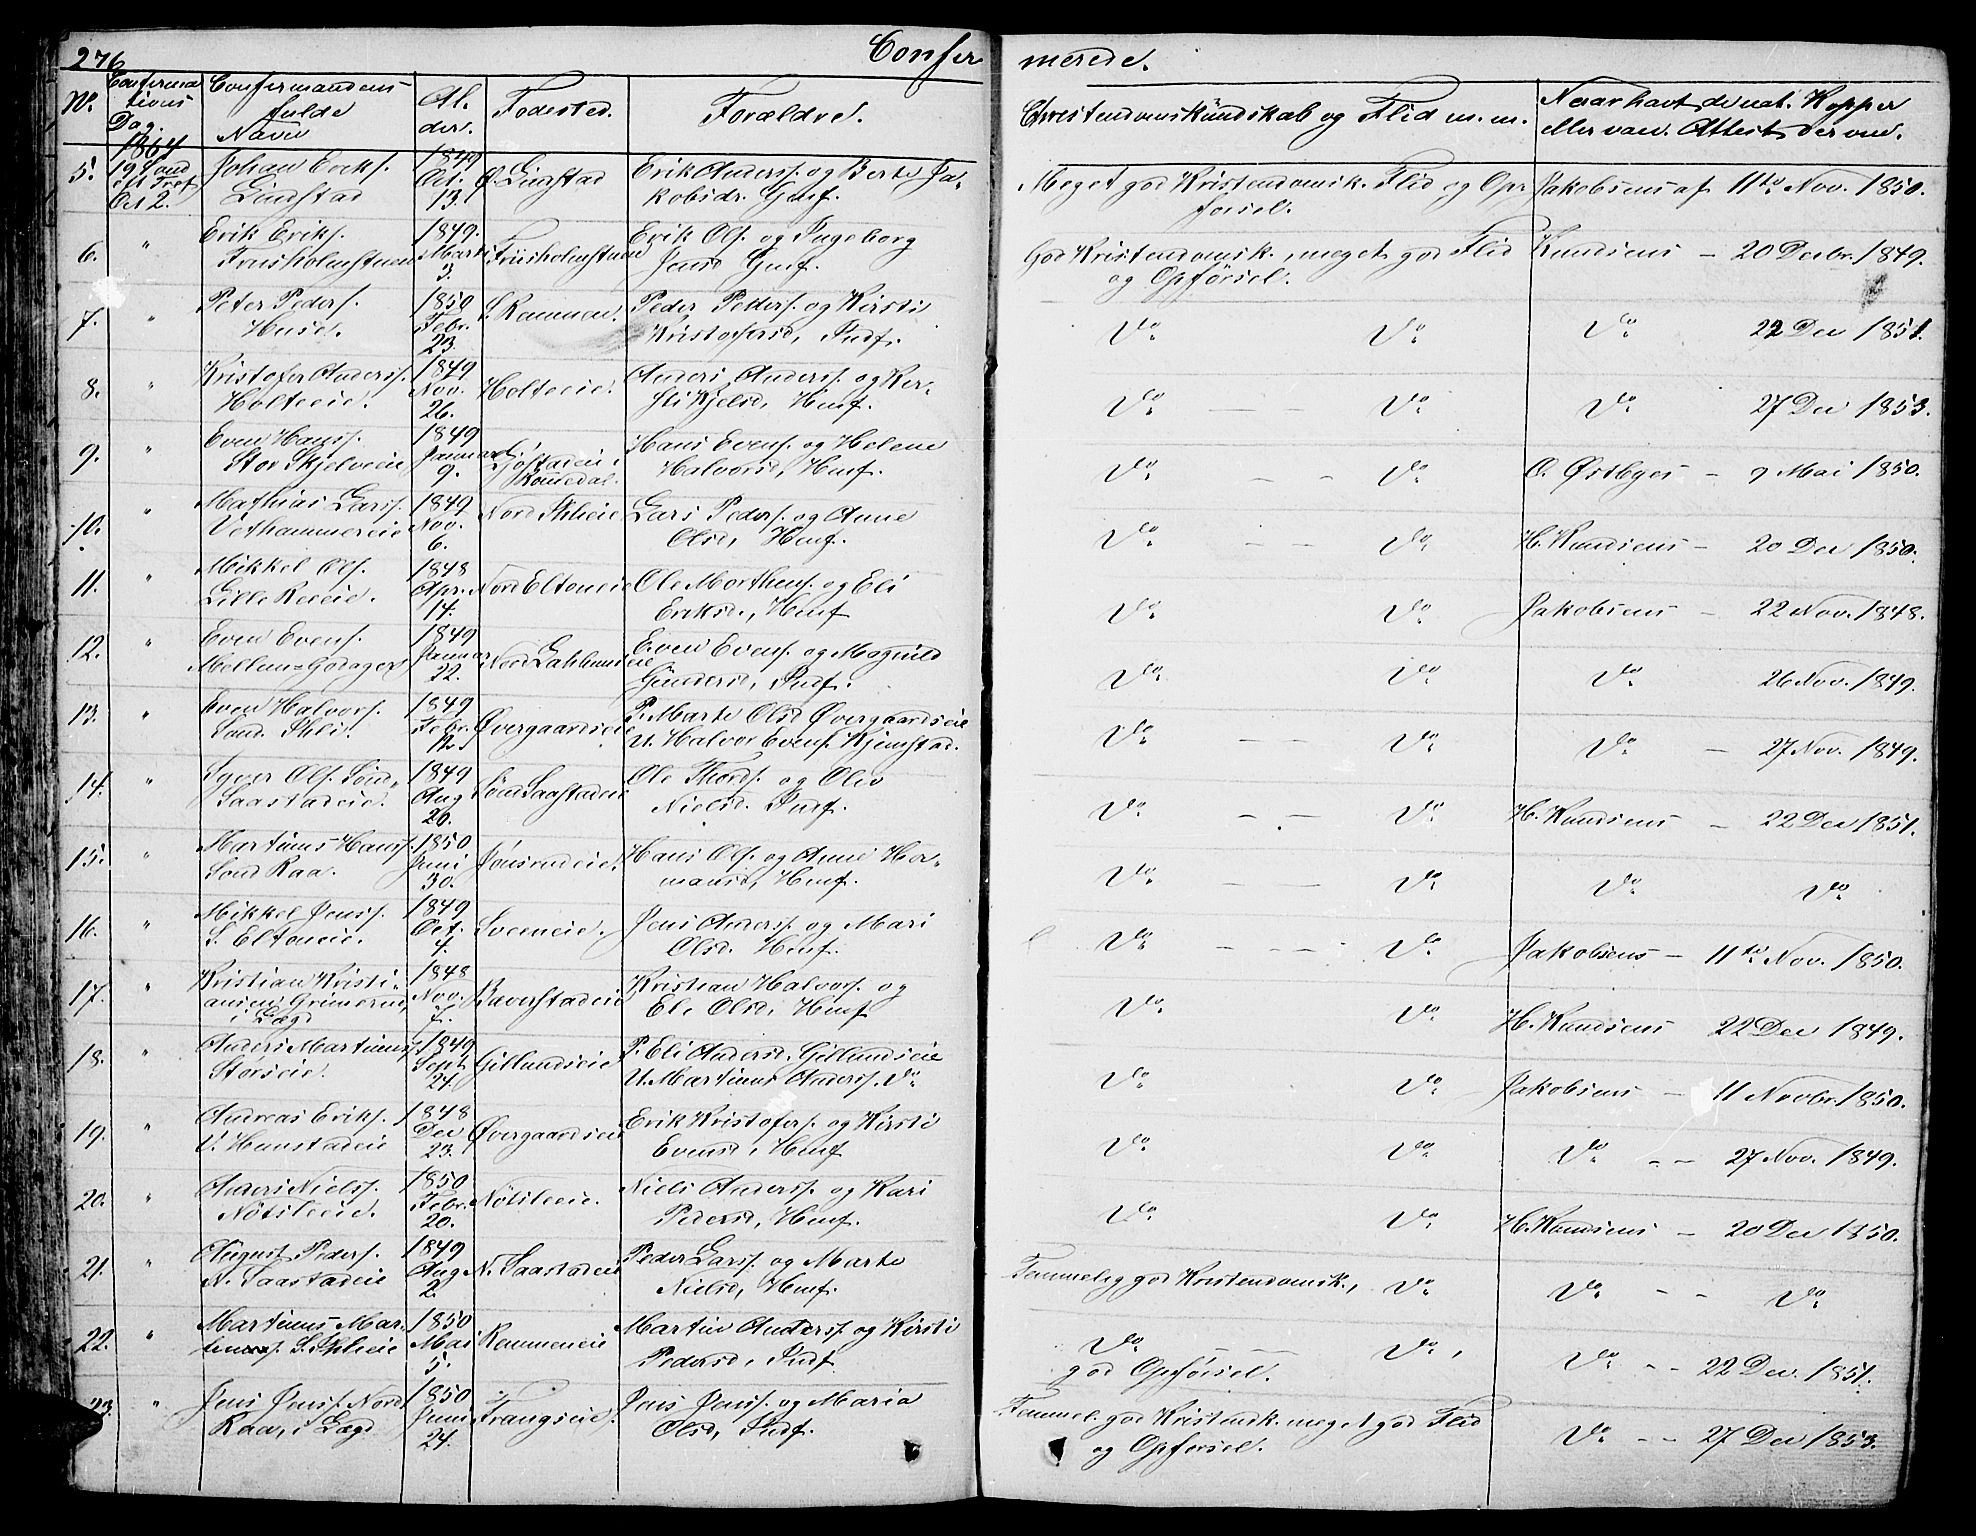 276
Confir
merede.
No.
Confirma
tions
Dag.
1864
Confirmandens
fulde
Navn
Al
der.
Fødested.
Forældre.
Christendomskundskab og Flid m. m.
Naar havt de nat. Kopper
eller vacc. Attest derom.
5. 19 Sønd eft Tref Oct 2. Johan Eriks. Lindstad 1849 Oct. 13. Ø. Lindstad Erik Anderss. og Berte Ja-
kobsdr. Gmf.
Meget god Kristendomsk. Flid og Op
førsel. Jakobsens af 11te Nov. 1850.
6. " Erik Eriks. 1849. Marts 3. Erik Ols. og Ingeborg
Jensd Gmf.
God Kristendomsk., meget god Flid
og Opførsel. Knudsens - 20 Decbr. 1849.
7. " Peter Peders. Huse. 1850 Febr. 23. S. Rommen. Peder Peders. og Kirsti
Kristofersd, Indf.
Do Do Do 22 Dec 1851.
8. " Kristofer Anderss. Holteeie. 1849 Nov. 26. Holteeie. Anders Anderss. og Ker-
sti Kjelsd, Hmf.
Do - - Do Do 27 Dec 1853.
9. " Even Hanss. Stor Skjelveeie 1849 Januar 9. Romedal. Hans Evens. og Helene
Halvorsd, Hmf.
Do - - Do O. Østbyes - 9 Mai 1850.
10. " Mathias Larss. Vethammereie 1849 Nov. 6. Nord Ihleeie Lars Peders. og Anne
Olsd, Hmf.
Do - - Do H. Knudsens - 20 Dec 1850.
11. " Mikkel Ols. Lille Reeie. 1848 Apr. 14. Nord Eltoneie Ole Morthens. og Eli
Eriksd., Hmf
Do Do Jakobsens - 22 Nov. 1848.
12. " Even Evens. Mellem=Godager 1849 Januar 22. Even Evens. og Magnild
Gundersd, Indf.
Do Do Do 26 Nov. 1849.
13. " Even Halvors. Sønd. Ihle. 1849 Febr. 12. Øvergaardseie P. Marte Olsd Øvergaardseie
U. Halvor Evens. Kjemstad.
Do - - Do Do - 27 Nov. 1849.
14. " Syver Ols. Sønd=
Saastadeie. 1849 Aug 20. Sønd Saastadeie Ole Thords. og Olea
Nielsd. Indf.
Do - . - Do H. Knudsens - 22 Dec 1851.
15. " Martinus Hanss. Sønd Raa. 1850 Juni 30. Jønsrudeie. Hans Ols. og Anne Her-
mansd, Hmf.
Do - - Do Do Do
16. " Mikkel Jenss. S. Eltoneie. 1849 Oct. 4. Sveeneie. Jens Anderss og Mari
Olsd. Hmf.
Do - - - Do Jakobsens - 11te Nov. 1850.
17. " Kristian Kristi-
ansen Grimerud,
i Lægd 1848 Nov. 7. Ravnstadeie Kristian Halvors. og
Eli Olsd, Hmf
Do Do H. Knudsens 22 Dec 1849.
18. " Anders Martinuss. Størseie. 1849 Sept 24. Gillundseie P. Eli Andersd, Gillundseie
U. Martinus Anderss. Do
Do Do Jakobsens - 11 Novbr. 1850.
19. " Andreas Eriks. V. Hemstadeie 1848 Dec 23. Øvergaardseie Erik Kristofers. og Kirsti
Evensd, Hmf
Do Do Do - - 27 Nov. 1849.
20. " Anders Nielss. Nötsleeie. 1850 Febr. 20. Nötsleeie. Niels Anderss. og Kari
Pedersd, Hmf.
Do Do H. Knudsens - 20 Dec 1850.
21. " August Peders. N. Saastadeie 1849 Aug 2. N. Saastadeie Peder Larss. og Marte
Nielsd, Hmf.
Temmelig god Kristendomsk., Do Do - - Do
22. " Martinus Mar-
tinuss. S. Ihleeie 1850 Mai 5. Rommeneie Martin Anderss. og Kirsti
Pedersd, Indf
Do - - Do,
god Opførsel. Do - - 22 Dec. 1851.
23. " Jens Jenss. Nord
Raa, i Lægd 1850 Juni 24. Trangseie. Jens Jenss. og Maria
Olsd, Indf.
Temmel. god Kristendk. meget god Flid
og Opførsel. Do - - 27 Dec 1853.